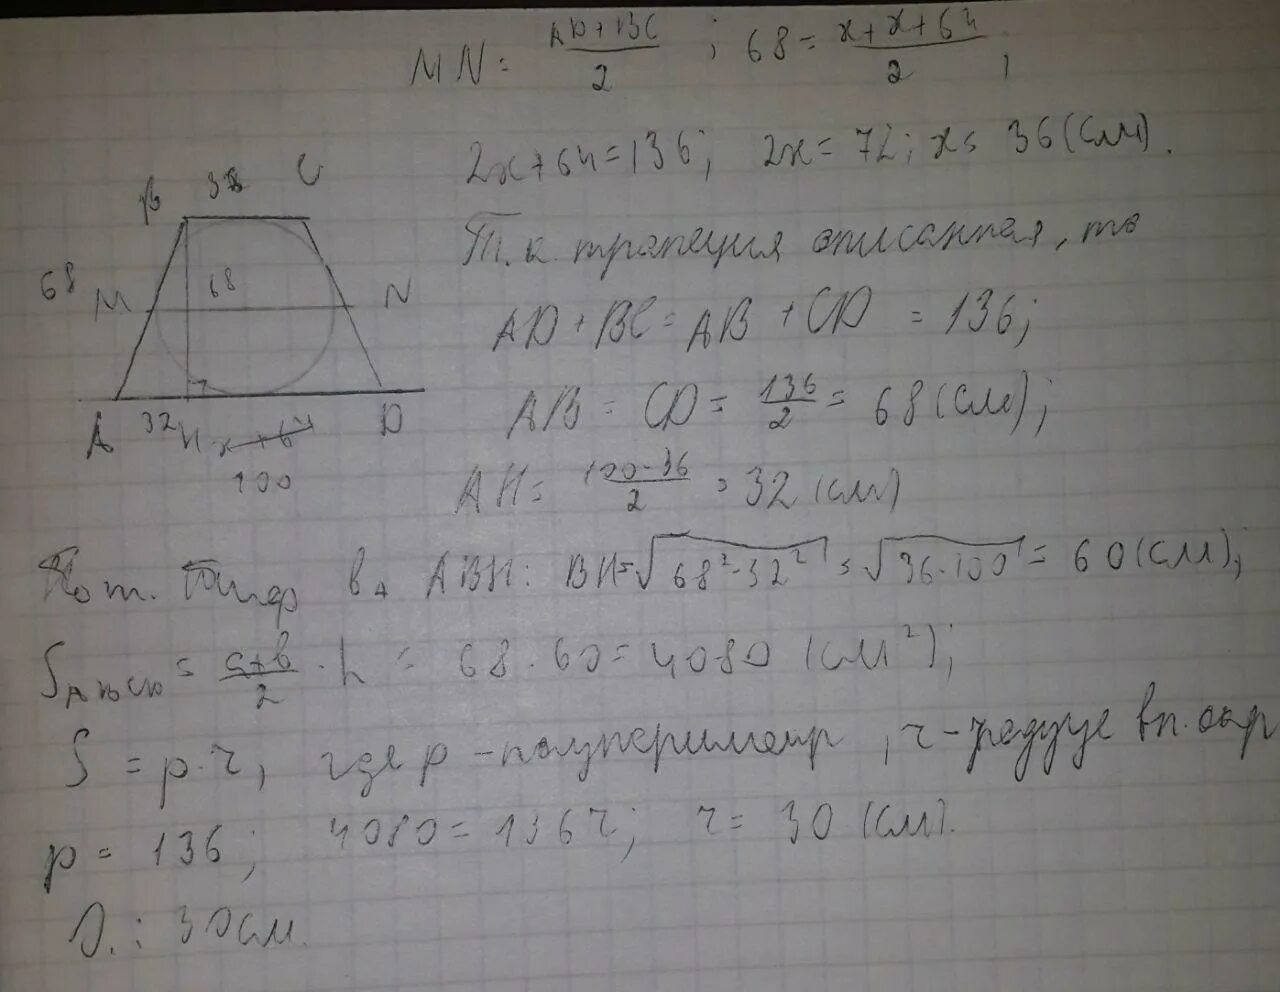 MN = (AD + BC)/2 ; 68 = (x + x + 64)/2 ;
2x + 64 = 136; 2x = 72; x = 36 (см).
B 36 C
68 M 68 N
A 32 H x + 64 D
100
Т.к. трапеция описанная, то
AD + BC = AB + CD = 136;
AB = CD = 136/2 = 68 (см);
AH = (100 - 36)/2 = 32 (см)
По т. Пиф в △ ABH: BH = √(68² - 32²) = √(36·100) = 60 (см);
S ABCD = (a + b)/2 · h = 68 · 60 = 4080 (см²);
S = p · r, где p - полупериметр, r - радиус вп. окр
p = 136; 4080 = 136r; r = 30 (см).
О.: 30 см.